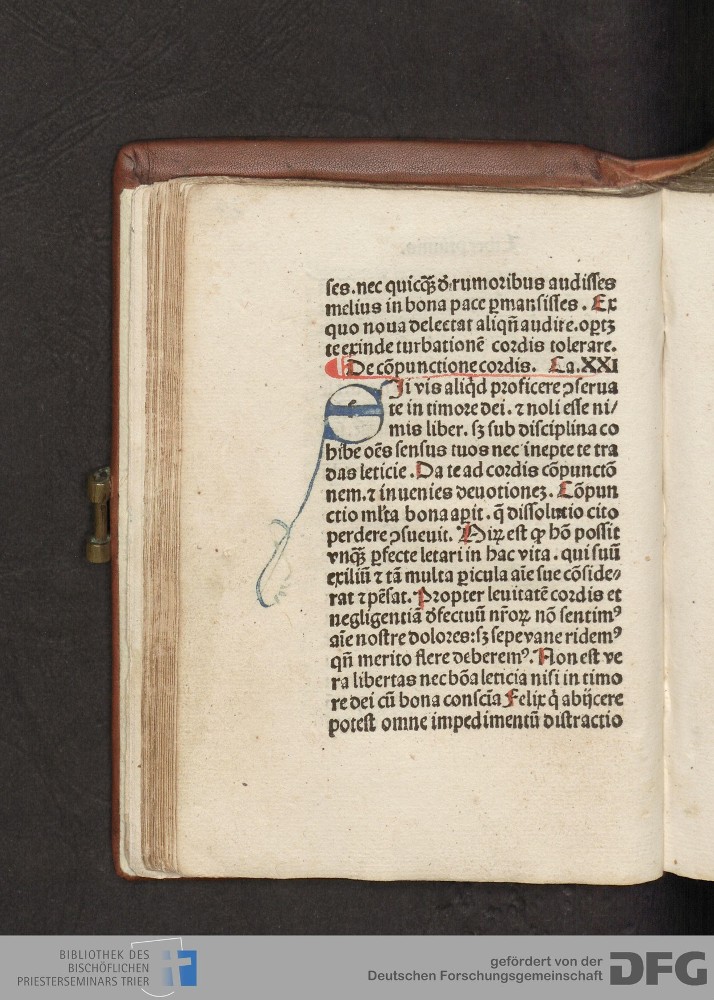 ses.nec quicqꝫ ꝺ̄ rumoribus audisses
melius in bona pace ꝑmansisses. Ex
quo noua delectat aliqn̄ audire.oꝑtꝫ
te exinde turbationē cordis tolerare.
De cōpunctione cordis. Ca.XXI
Si vis aliqͥd proficere ↄserua
te in timore dei. ⁊ noli esse ni/
mis liber. sꝫ sub disciplina co
hibe oēs sensus tuos nec inepte te tra
das leticie. Da te ad cordis cōpunctō
nem.⁊ inuenies deuotionez. Cōpun
ctio ml̄ta bona aꝑit. q̄ dissolutio cito
perdere ↄsueuit. Mirꝫ est ꝙ hō possit
vnqꝫ ꝑfecte letari in hac vita. qui suū
exiliū ⁊ tā multa ꝑicula aīe sue cōside⸗
rat ⁊ pēsat. Propter leuitatē cordis et
negligentiā ꝺ̄fectuū nr̄oꝝ nō sentimꝰ
aīe nostre dolores:sꝫ sepe vane ridemꝰ
qn̄ merito flere deberemꝰ. Non est ve
ra libertas nec bōa leticia nisi in timo
re dei cū bona conscīa Felix qͥ abijcere
potest omne impedimentū distractio
BIBLIOTHEK DES
BISCHÖFLICHEN
PRIESTERSEMINARS TRIER
gefördert von der
Deutschen Forschungsgemeinschaft DFG